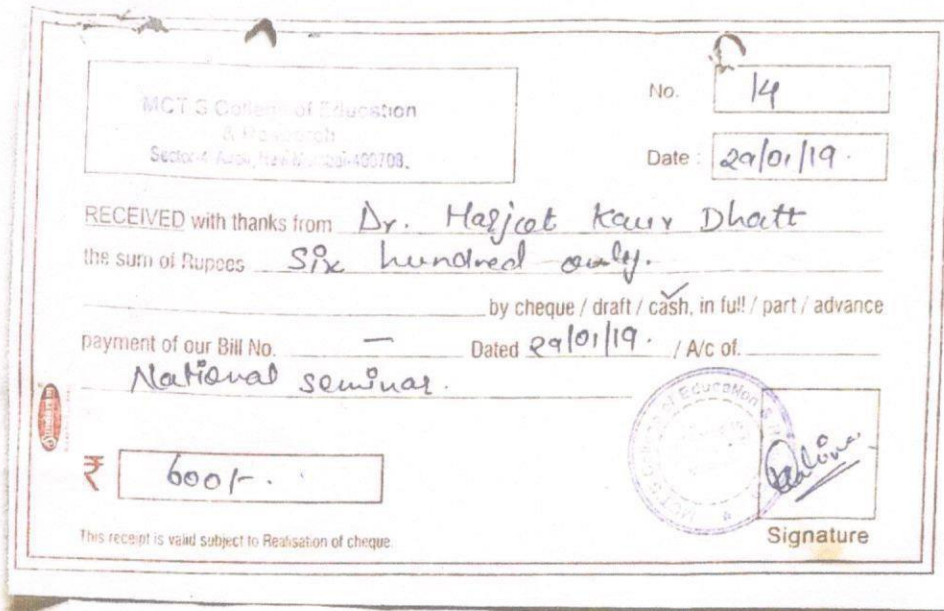 MCT'S College of Education
& Research
Sector-4, Airoli, Navi Mumbai-400708.
No. 14
Date : 29/01/19.
RECEIVED with thanks from Dr. Harjeet Kaur Dhatt
the sum of Rupees Six hundred only.
by cheque / draft / cash, in full / part / advance
payment of our Bill No. — Dated 29/01/19. / A/c of.
National seminar.
of Education &
MCT'S
₹ 600/-.
This receipt is valid subject to Realisation of cheque.
Signature